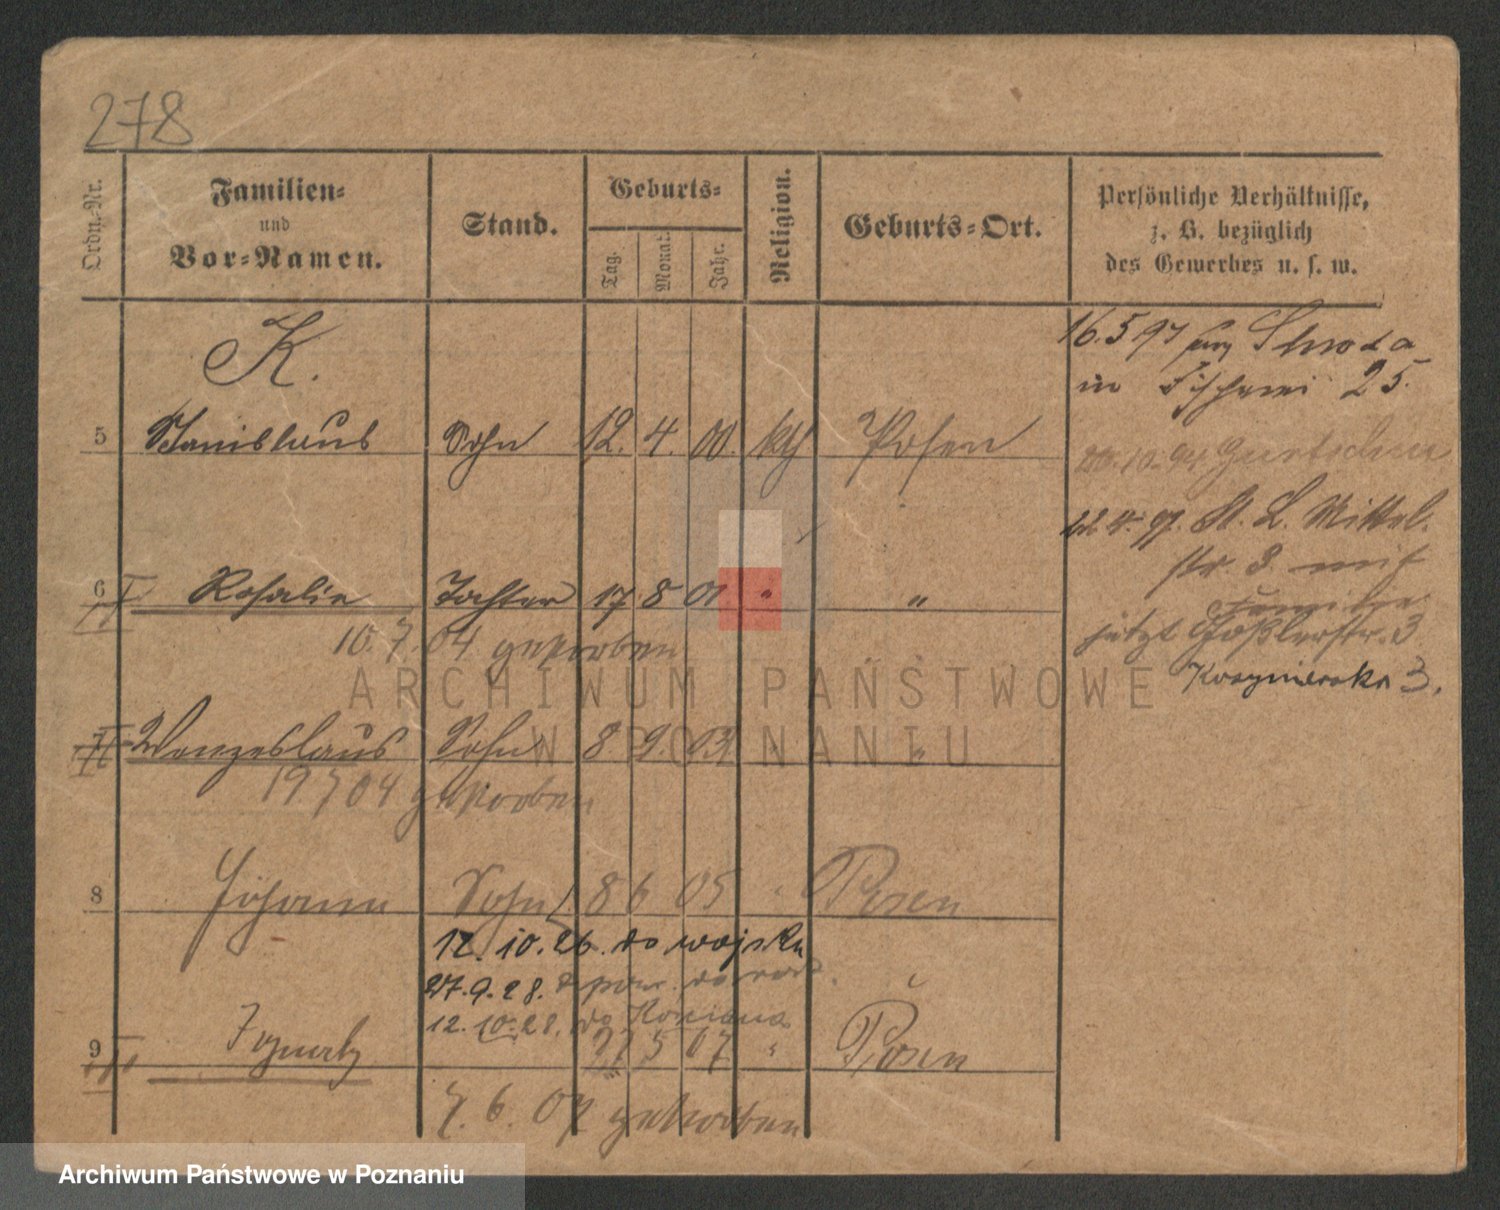 278
Ordn.-Nr.
Familien-
und
Vor-Namen.
Stand.
Geburts-
Tag.
Monat.
Jahr.
Religion.
Geburts-Ort.
Persönliche Verhältnisse,
z. B. bezüglich
des Gewerbes u. s. w.
K.
16.5 97
in Fischerei 25.
5 Stanislaus Sohn 12. 4. 00. kth Posen
22 4. 97. St. L. Mittel-
str. 8 mit
Familie
6 Rosalie Tochter 17 8 01 " "
10.7.04 gestorben
jetzt Goßlerstr. 3
3.
ARCHIWUM PAŃSTWOWE
W POZNANIU
7 Wenzeslaus Sohn 8 9. 03 " "
19 7 04 gestorben
8 Johann Sohn 8 6 05 " Posen
12. 10. 26. do wojska
27. 9. 28. z
12. 10. 28. do Kościana
9 Ignatz 27 5 07 " Posen
7. 6. 07 gestorben
Archiwum Państwowe w Poznaniu